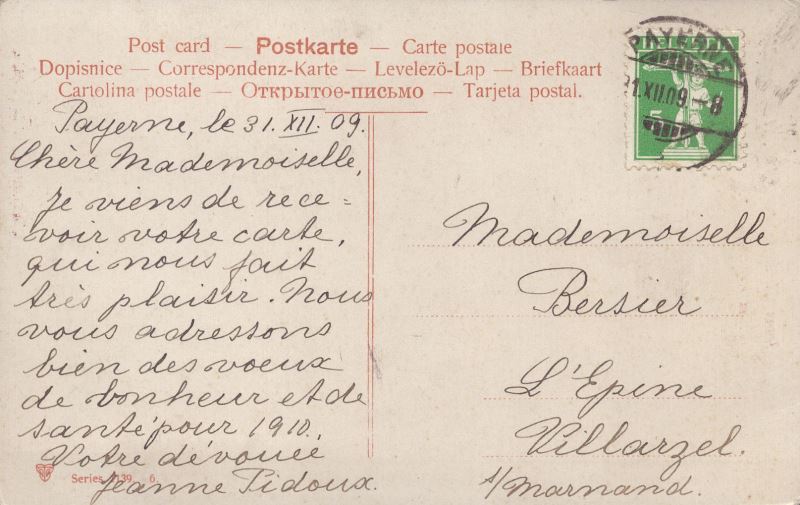 Post card — Postkarte — Carte postale
Dopisnice — Correspondenz-Karte — Levelező-Lap — Briefkaart
Cartolina postale — Открытое-письмо — Tarjeta postal.
PAYERNE
HELVETIA
31.XII.09.–8
5
Payerne, le 31. XII. 09.
Chère Mademoiselle,
Je viens de rece=
voir votre carte,
qui nous fait
très plaisir. Nous
vous adressons
bien des voeux
de bonheur et de
santé pour 1910.
Votre dévouée
Jeanne Pidoux.
Series 1139 6.
Mademoiselle
Bersier
L'Epine
Villarzel.
s/Marnand.